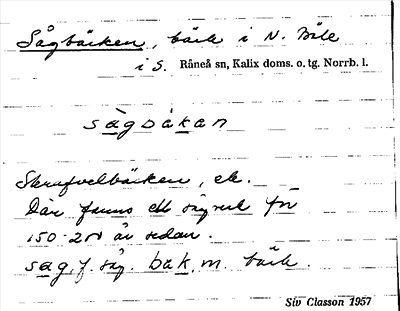 Sågbäcken, bäck i N. Böle
i S. Råneå sn, Kalix doms. o. tg. Norrb. l.
sàgbákan
Skrufvelbäcken, el.
Där fanns ett sågverk för
150-200 år sedan.
sag, f. såg. bäk, m. bäck.
Siv Classon 1957